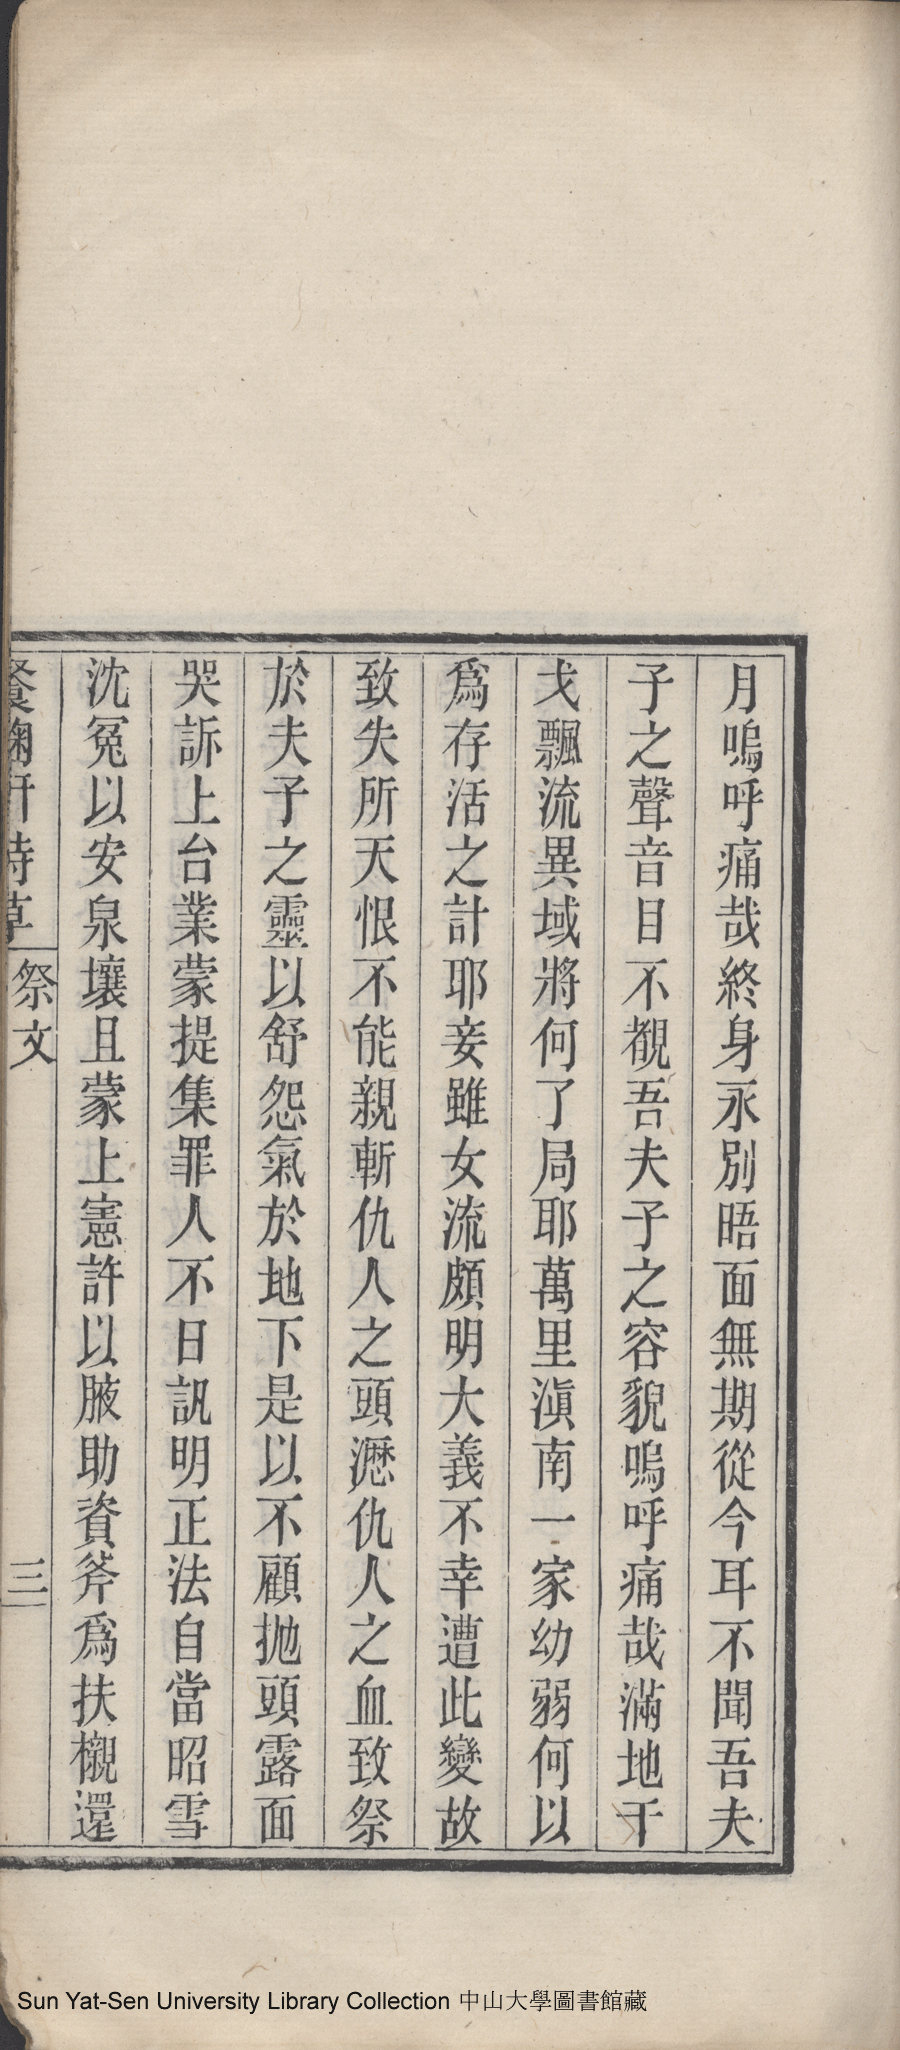 月嗚呼痛哉終身永別晤面無期從今耳不聞吾夫
子之聲音目不覩吾夫子之容貌嗚呼痛哉滿地干
戈飄流異域將何了局耶萬里滇南一家幼弱何以
爲存活之計耶妾雖女流頗明大義不幸遭此變故
致失所天恨不能親斬仇人之頭瀝仇人之血致祭
於夫子之靈以舒怨氣於地下是以不顧拋頭露面
哭訴上台業蒙提集罪人不日訊明正法自當昭雪
沈冤以安泉壤且蒙上憲許以腋助資斧爲扶櫬還
餐菊軒詩草
祭文
三
Sun Yat-Sen University Library Collection 中山大學圖書館藏